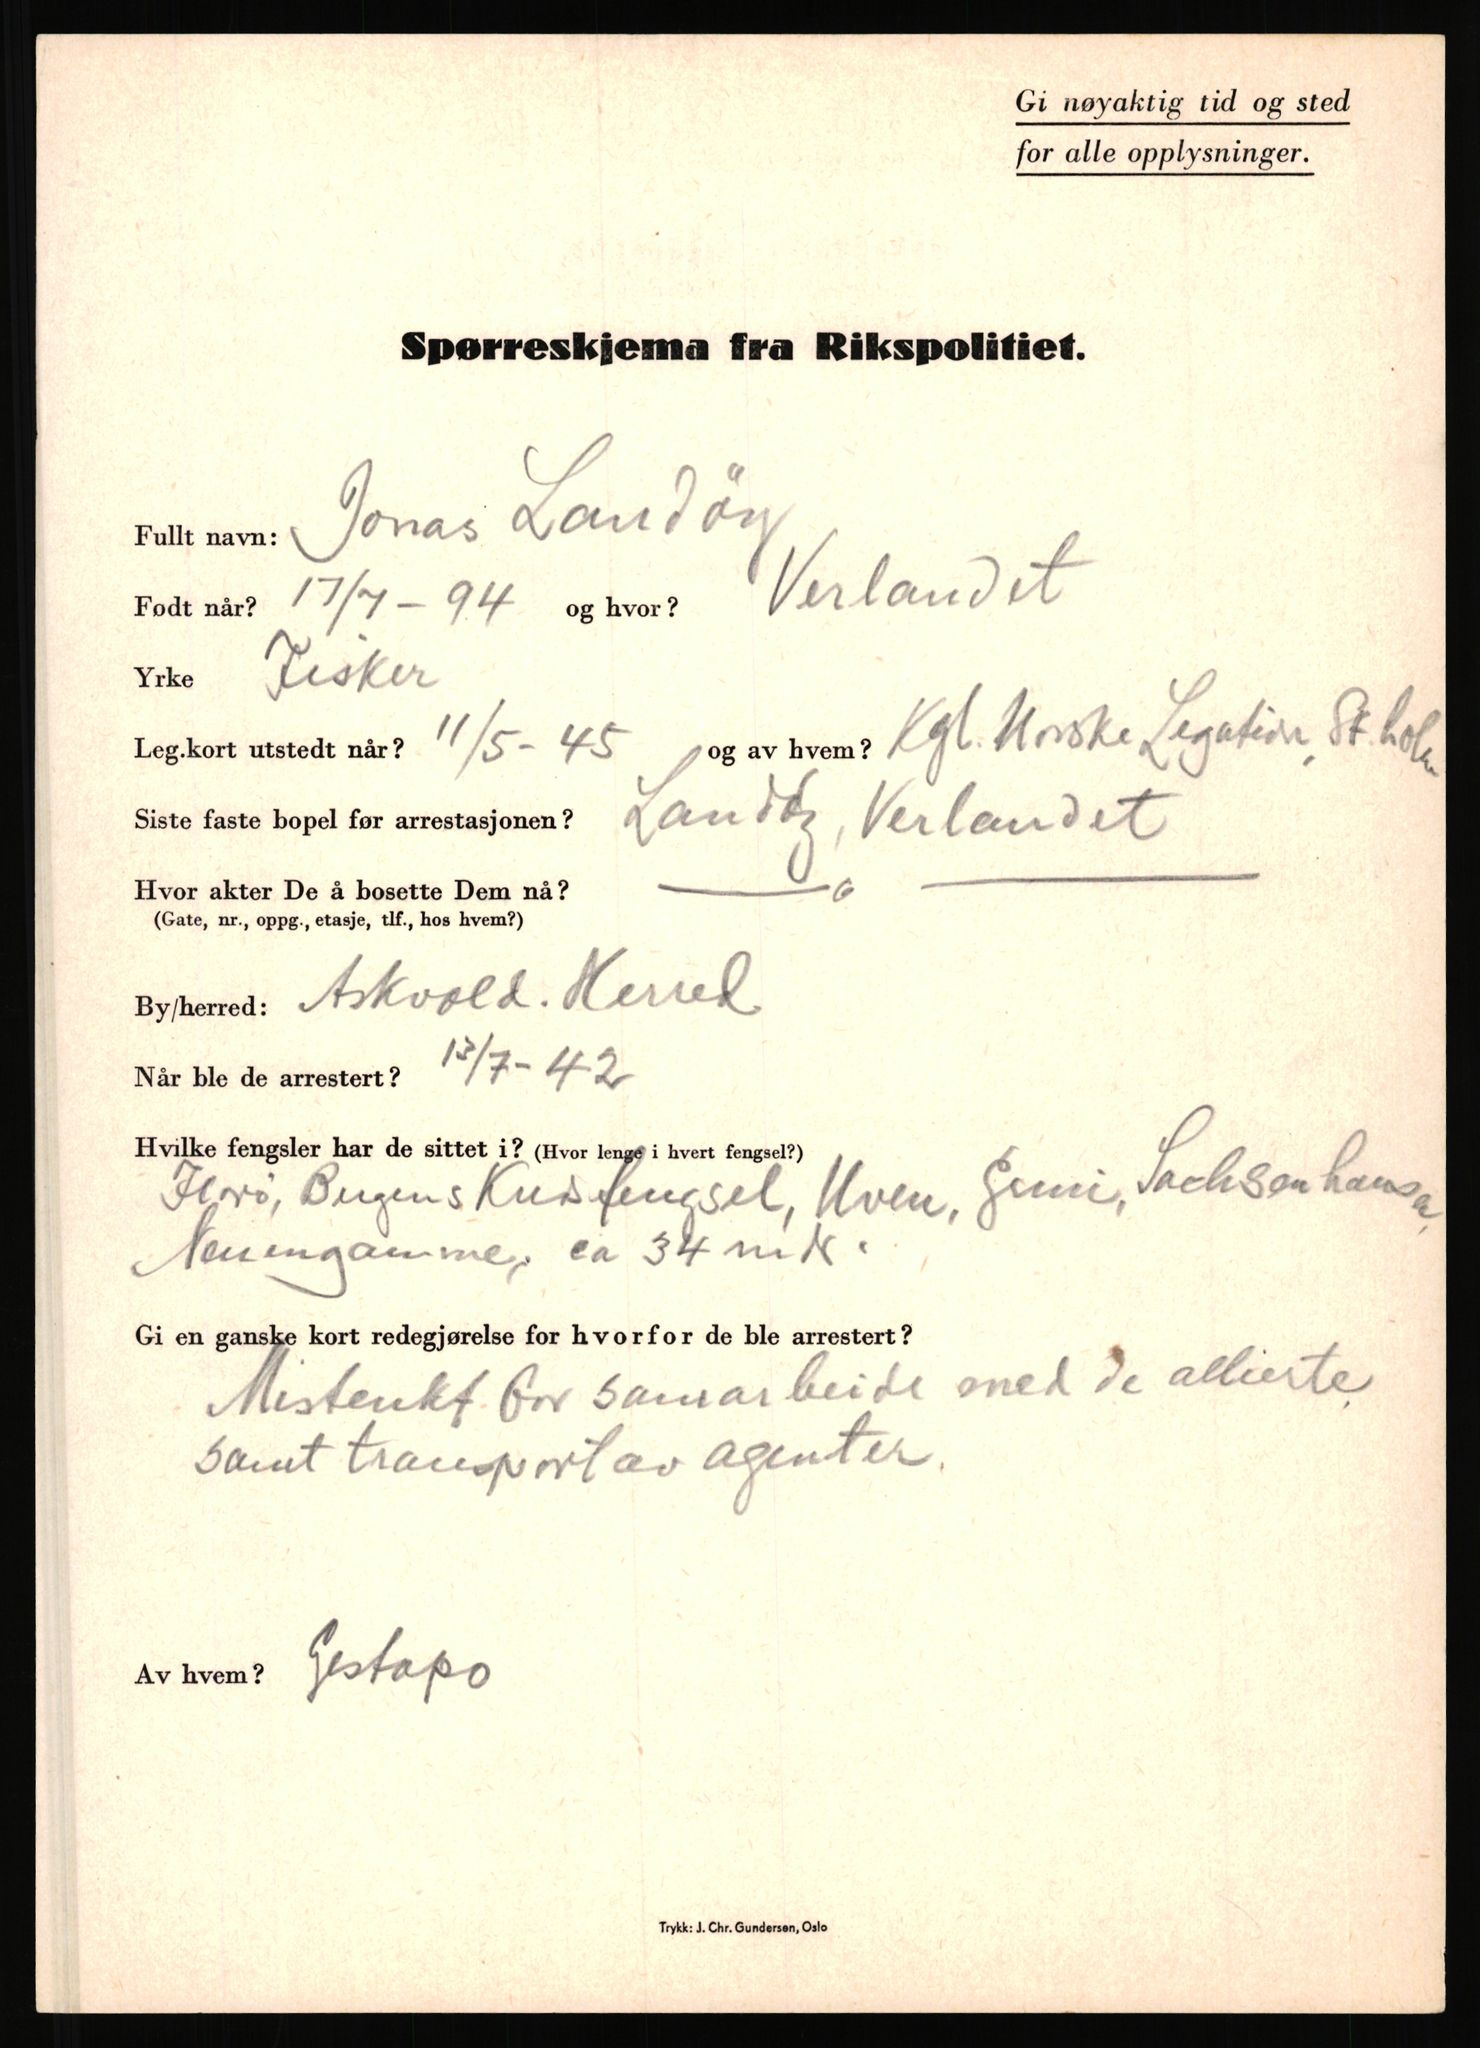 Gi nøyaktig tid og sted
for alle opplysninger.
Spørreskjema fra Rikspolitiet.
Fullt navn: Jonas Landöy
Født når? 17/7 - 94 og hvor? Verlandet
Yrke Fisker
Leg.kort utstedt når? 11/5 - 45 og av hvem? Kgl. Norske Legation, St.holm
Siste faste bopel før arrestasjonen? Landöy, Verlandet
Hvor akter De å bosette Dem nå?
(Gate, nr., oppg., etasje, tlf., hos hvem?)
By/herred: Askvold. Herred
Når ble de arrestert? 13/7 - 42
Hvilke fengsler har de sittet i? (Hvor lenge i hvert fengsel?)
Florö, Bergens Kretsfengsel, Ulven, Grini, Sachsenhausen,
Neuengamme, ca 34 mdr.
Gi en ganske kort redegjørelse for hvorfor de ble arrestert?
Mistenkt for samarbeide med de allierte,
samt transport av agenter.
Av hvem? Gestapo
Trykk: J. Chr. Gundersen, Oslo